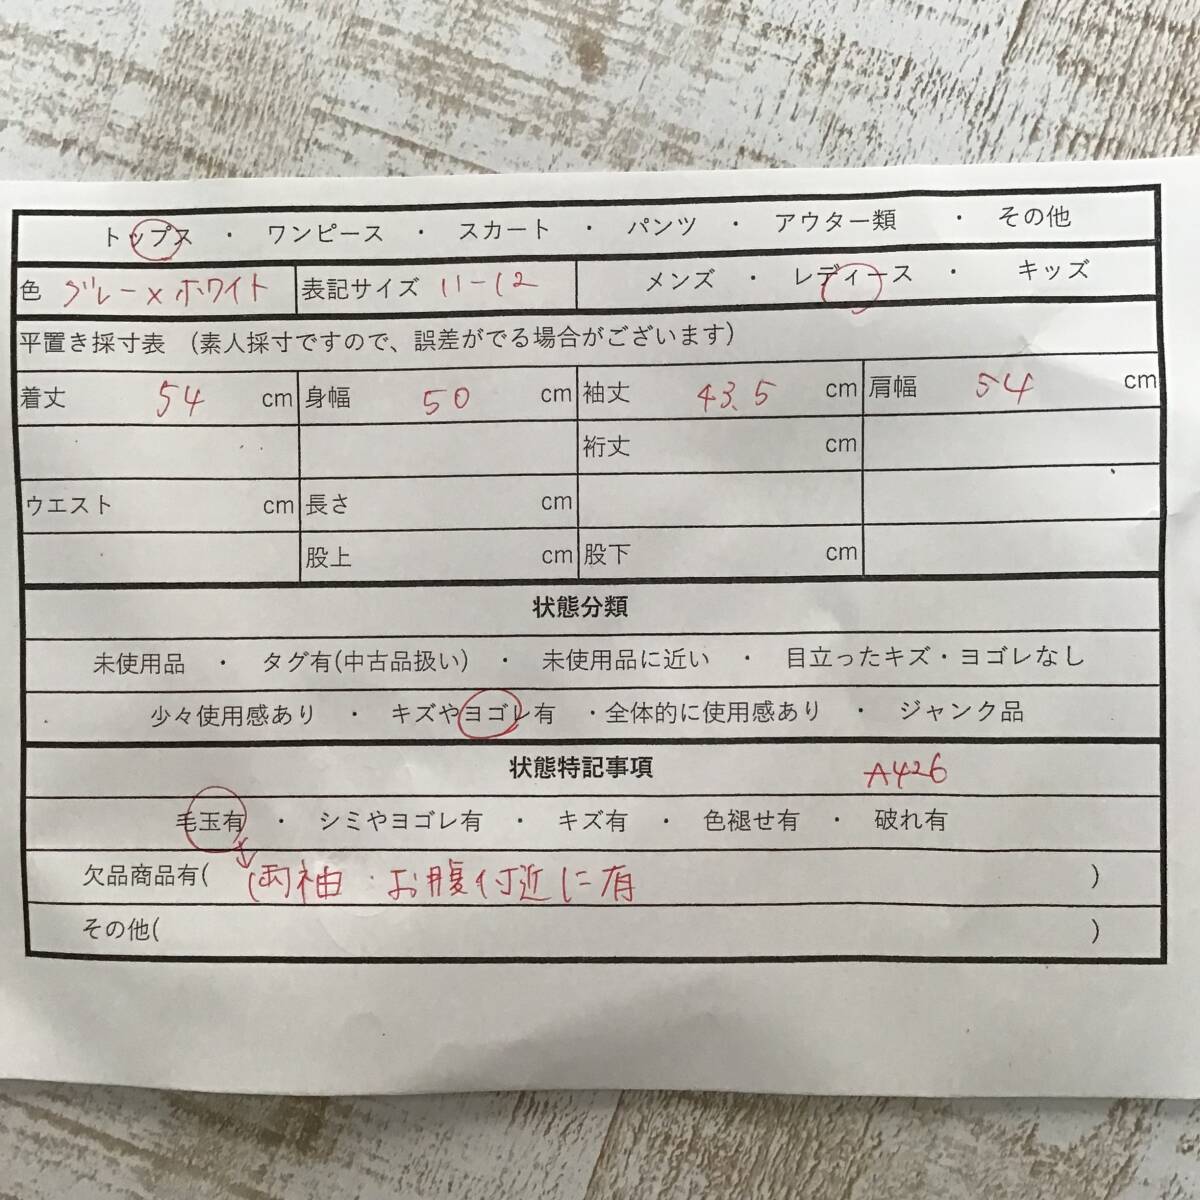 トップス ・ ワンピース ・ スカート ・ パンツ ・ アウター類 ・ その他
色 グレー×ホワイト 表記サイズ 11-12 メンズ ・ レディース ・ キッズ
平置き採寸表 (素人採寸ですので、誤差がでる場合がございます)
着丈 54 cm 身幅 50 cm 袖丈 43.5 cm 肩幅 54 cm
裄丈 cm
ウエスト cm 長さ cm
股上 cm 股下 cm
状態分類
未使用品 ・ タグ有(中古品扱い) ・ 未使用品に近い ・ 目立ったキズ・ヨゴレなし
少々使用感あり ・ キズやヨゴレ有 ・全体的に使用感あり ・ ジャンク品
状態特記事項 A426
毛玉有 ・ シミやヨゴレ有 ・ キズ有 ・ 色褪せ有 ・ 破れ有
欠品商品有( 両袖・お腹付近に有 )
その他( )